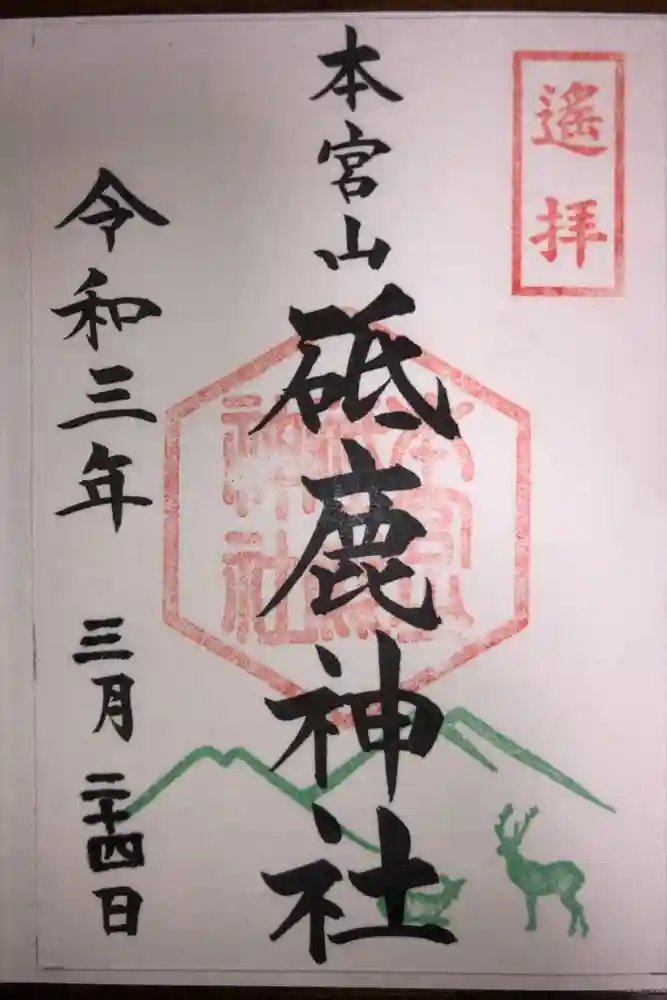 遙拝
本宮山
砥鹿神社
令和三年
三月
二十四日